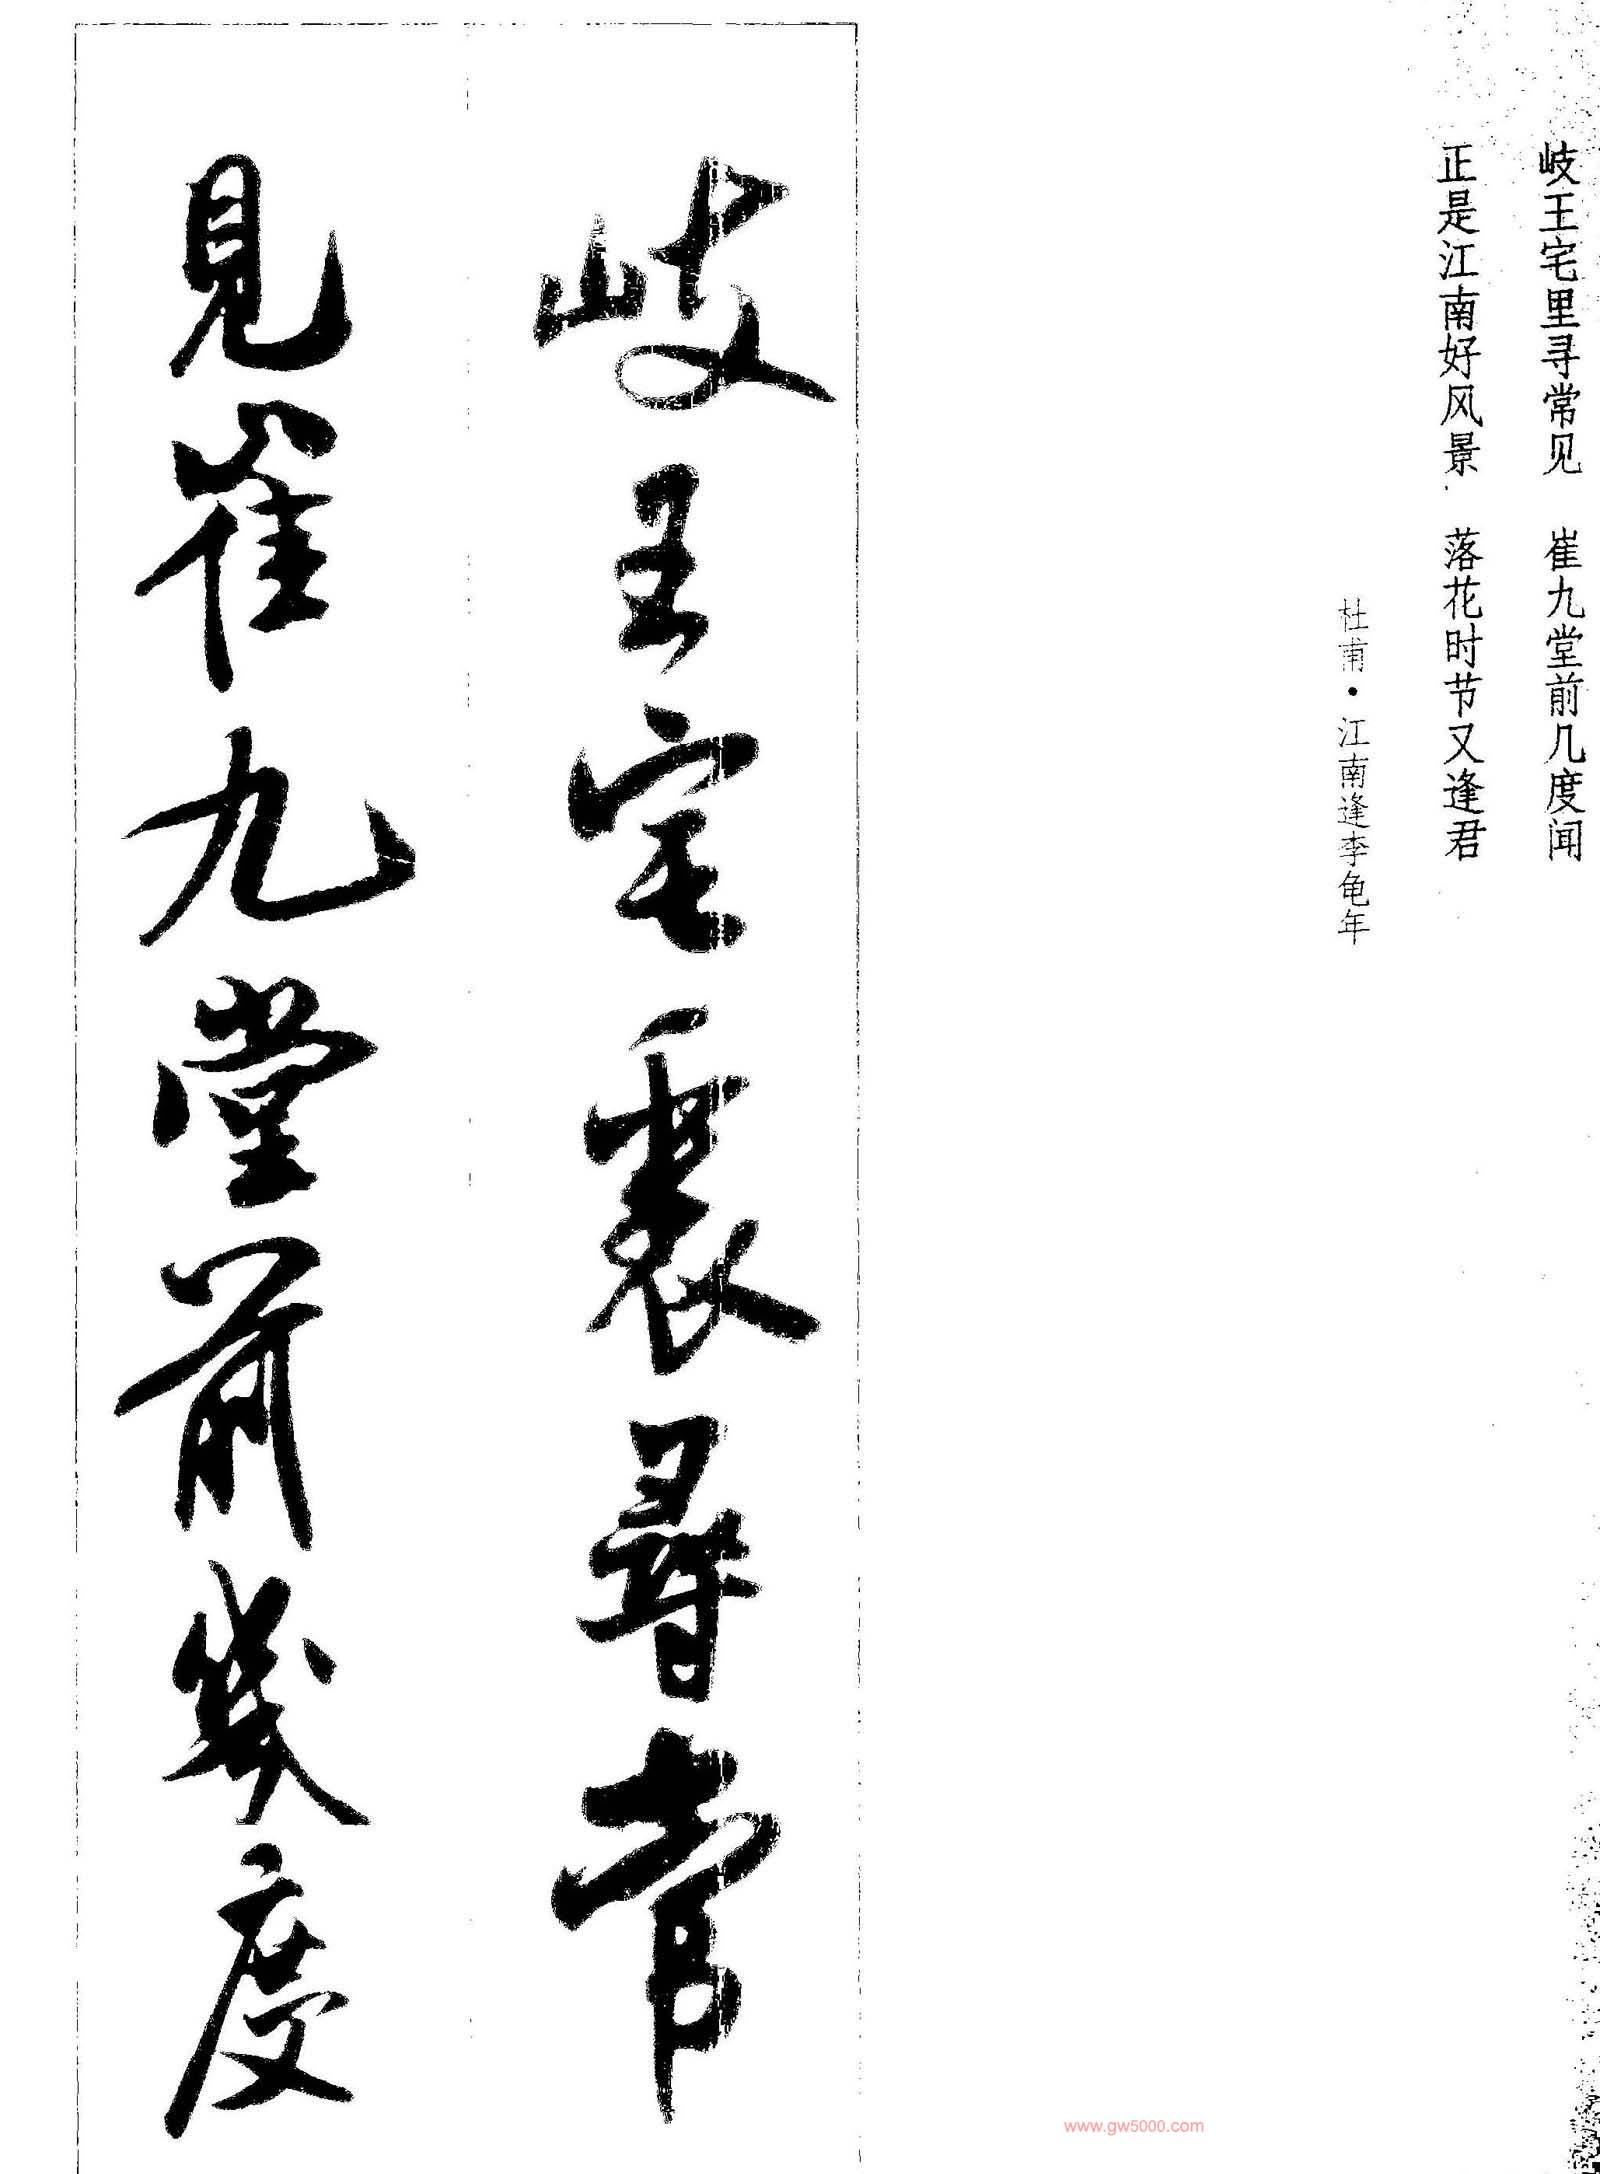 岐王宅里寻常见 崔九堂前几度闻
正是江南好风景 落花时节又逢君
杜甫·江南逢李龟年
岐王宅裏尋常
見崔九堂前幾度
www.gw5000.com